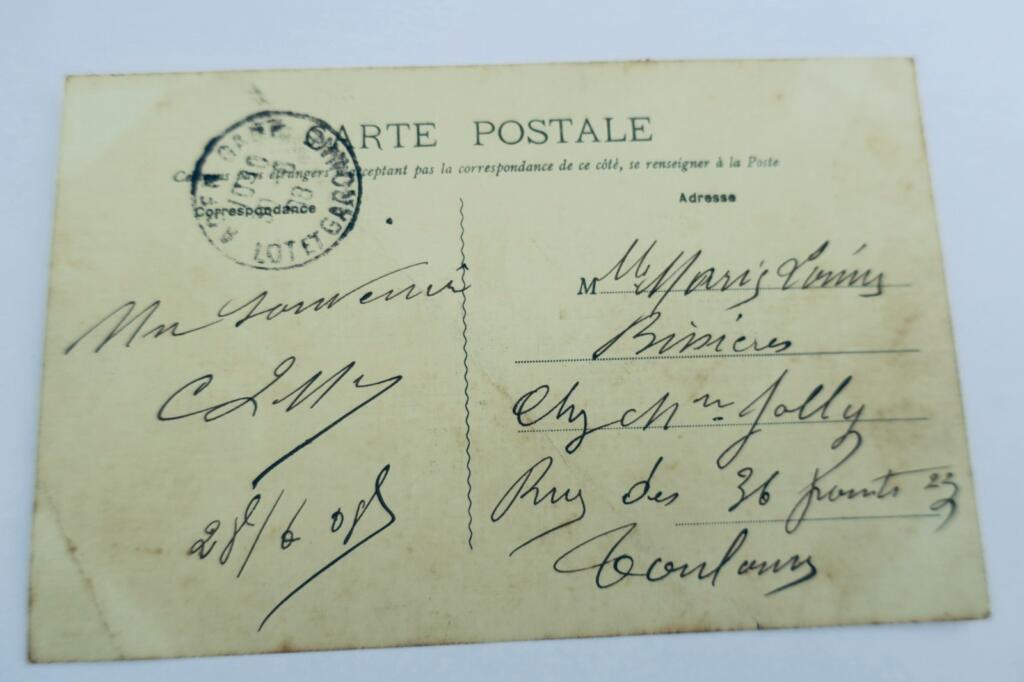 CARTE POSTALE
pays étrangers n'acceptant pas la correspondance de ce côté, se renseigner à la Poste
Correspondance
Adresse
AGEN GARE
LOT ET GARONNE
Un souvenir
28/6 08
M Mlle Marie Louise
Bissières
Chez Mr Jolly
Rue des 36 ponts 23
Toulouse